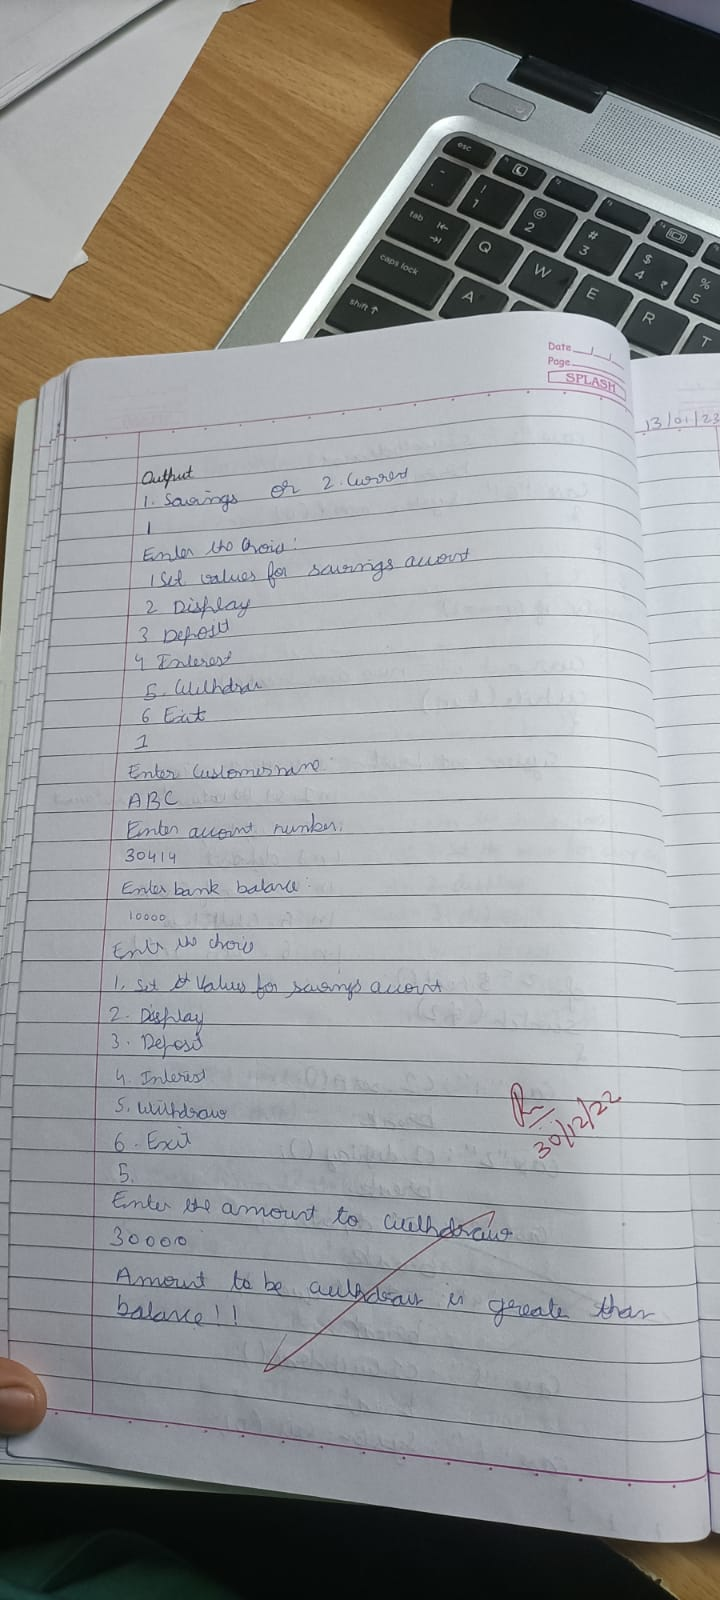 esc
! 1
@ 2
# 3
$ 4 ₹
% 5
tab
Q
W
E
R
T
caps lock
A
shift ↑
Date __/__/__
Page
SPLASH
13/01/23
Output
1. Savings or 2. Curret
1
Enter the choic:
1 Set values for savings accont
2 Display
3 Deposit
4 Interest
5. Withdraw
6 Exit
1
Enter Customername:
ABC
Enter account number:
30414
Enter bank balance:
10000
Enter the choic
1. Set Values for savings account
2. Display
3. Deposit
4. Interest
5. Withdraw
6. Exit
5.
30/12/22
Enter the amount to withdraw
30000
Amount to be withdraw is greate than
balance!!